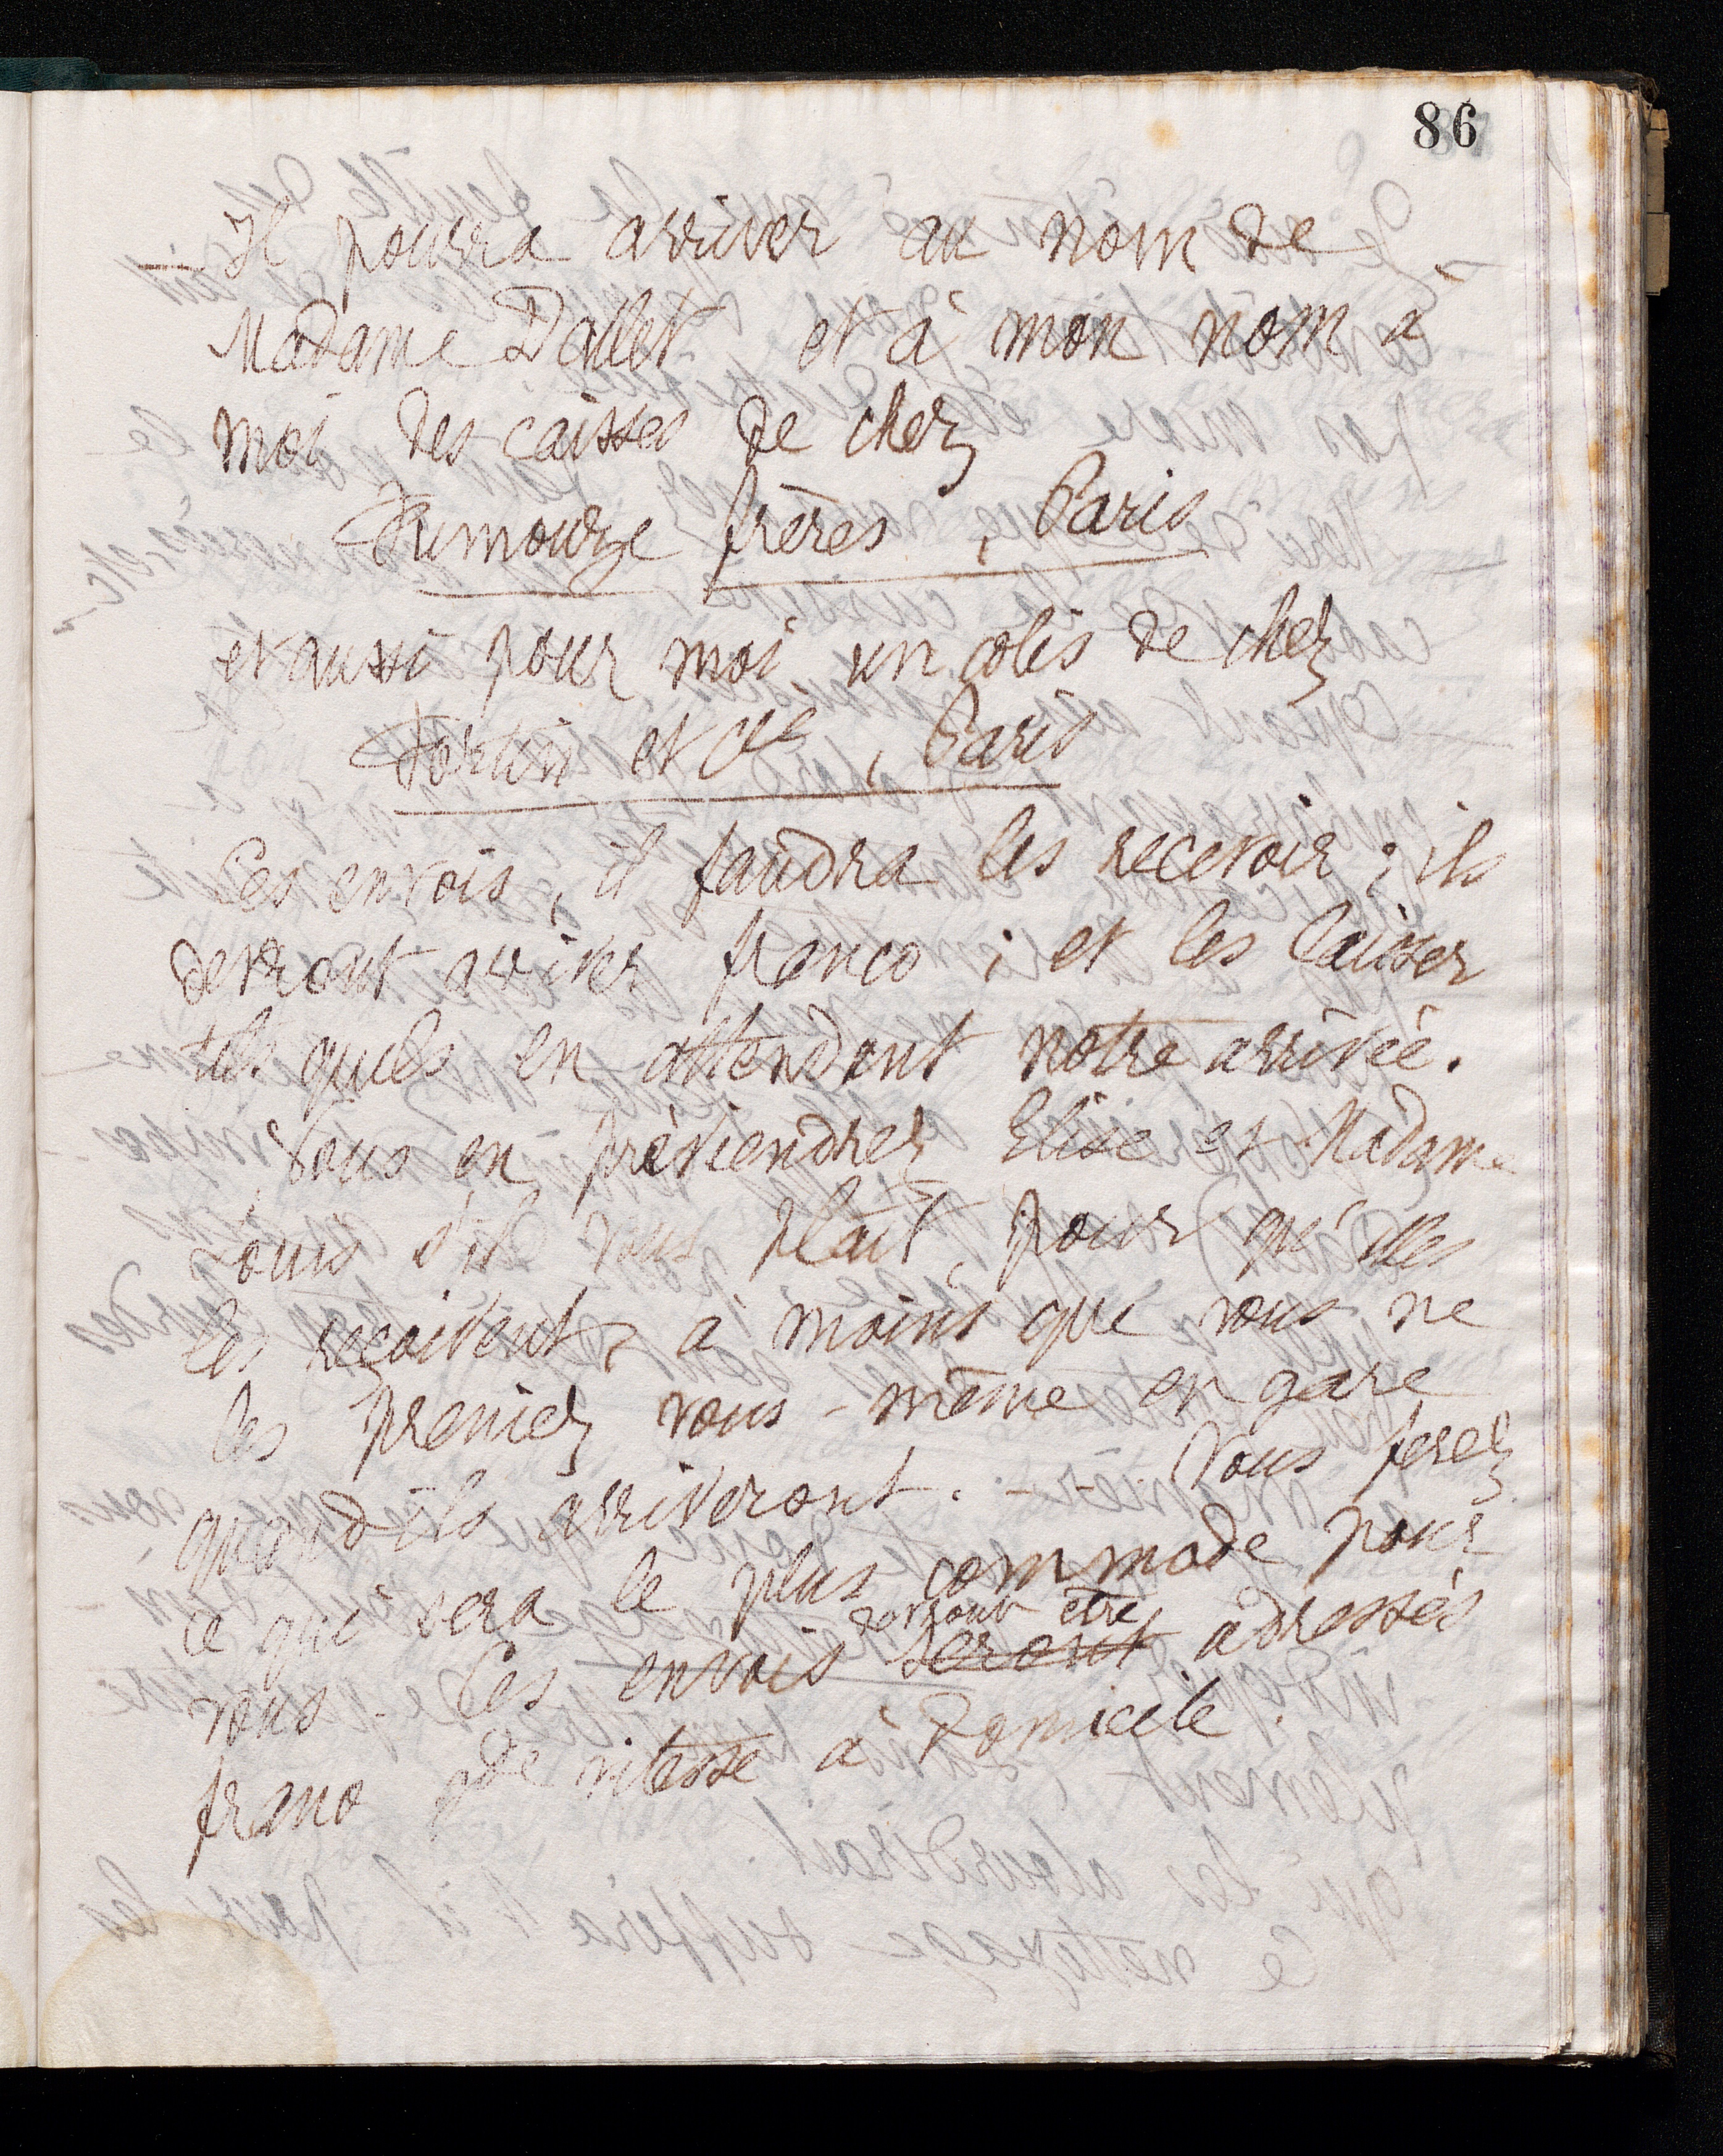 86
— Il pourra arriver au nom de
Madame Dallet et à mon nom à
moi des caisses de chez
Fumouze frères, Paris
et aussi pour moi un colis de chez
Fortin et Cie, Paris
Ces envois, il faudra les recevoir ; ils
devront arriver franco ; et les laisser
tels quels en attendant notre arrivée.
Vous en préviendrez Elise et Madame
Louis s'il vous plait, pour qu'elles
les reçoivent, à moins que vous ne
les preniez vous-même en gare
quand ils arriveront. - Vous ferez
ce qui sera le plus commode pour
vous - Ces envois seront devront être adressés
franco gde vitesse à Domicile.